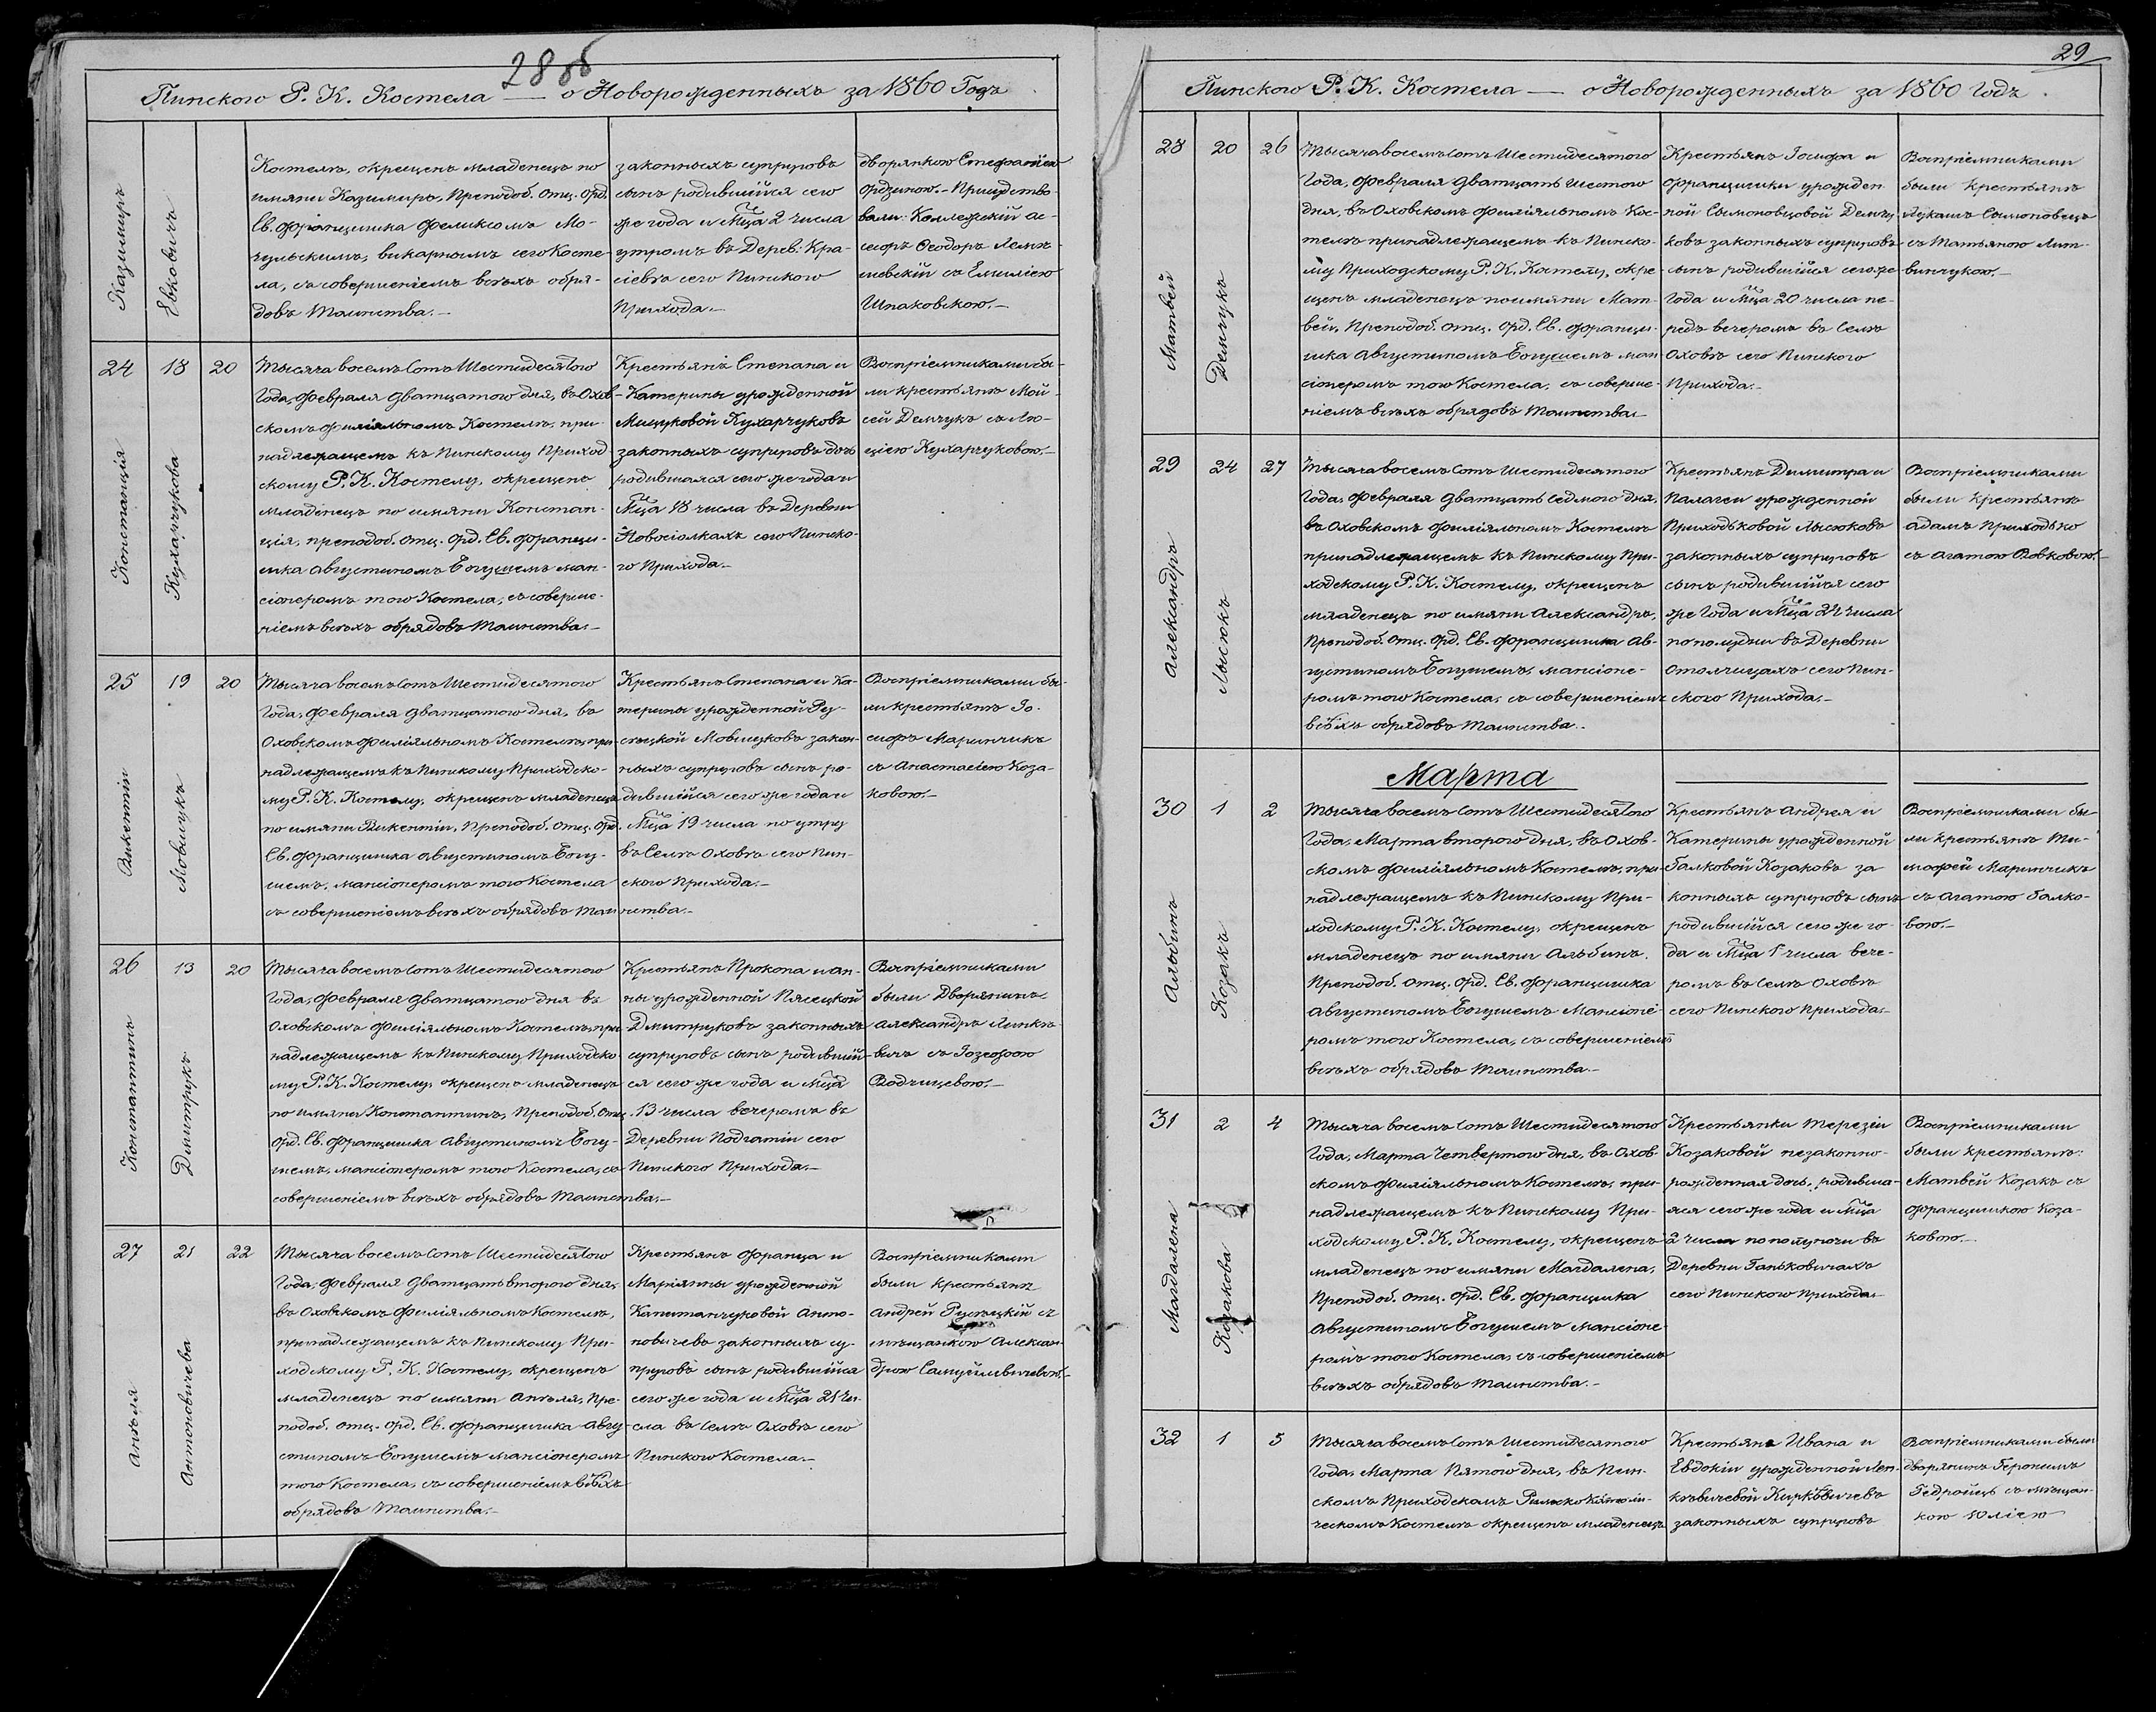 28 об
Пинского Р. К. Костела — о Новорожденныхъ за 1860 Годъ
Казимиръ
Евковичъ
Костелъ, окрещенъ младенецъ по
имяни Казимиръ, Преподоб. Отц. Орд.
Св. Францишка Феликсомъ Мо-
чульскимъ, викарнымъ сего Косте-
ла, съ совершеніемъ всѣхъ обря-
довъ Таинства.—
законныхъ супруговъ
сынъ родившійся сего
же года и Мца 2 числа
утромъ въ Дерев. Кра-
сіевѣ сего Пинского
Прихода.—
дворянкою Стефаніею
Ордзиною.— Присудство-
вали: Коллежскій ас-
сесоръ Феодоръ
съ Емиліею
Шпаковскою.—
24 18 20
Констанція
Кухарчукова
Тысяча восемъ Сотъ Шестидесятого
Года, Февраля Дватцатого дня, въ Охов-
скомъ Филіяльномъ Костелѣ, при-
надлежащемъ къ Пинскому Приход-
скому Р. К. Костелу, окрещенъ
младенецъ по имяни Констан-
ція, преподоб. отц. Орд. Св. Францы-
шка Августиномъ Богушемъ ман-
сіонеромъ того Костела, съ соверше-
ніемъ всѣхъ обрядовъ Таинства.—
Крестьянъ Степана и
Катерины урожденной
Мицуковой Кухарчуковъ
законныхъ супруговъ дочь
родившаяся сего же года и
Мца 18 числа въ Деревни
Новосіолкахъ сего Пинско-
го Прихода.—
Воспріемниками бы-
ли крестьянъ Мой-
сей Демчукъ съ Лю-
цією Кухарчуковою.—
25 19 20
Викентій
Мовшукъ
Тысяча восемъ Сотъ Шестидесятого
Года, Февраля Дватцатого дня, въ
Оховскомъ Филіяльномъ Костелѣ, при-
надлежащемъ къ Пинскому Приходско-
му Р. К. Костелу, окрещенъ младенецъ
по имяни Викентій, Преподоб. Отц. Орд.
Св. Францишка Августиномъ Богу-
шемъ, мансіонеромъ того Костела
съ совершеніемъ всѣхъ обрядовъ Таинства.—
Крестьянъ Степана и Ка-
терины урожденной Ру-
сѣцкой Мовшуковъ закон-
ныхъ супруговъ сынъ ро-
дившійся сего же года и
Мца 19 числа по утру
въ Селѣ Оховѣ сего Пин-
ского Прихода.—
Воспріемниками бы-
ли крестьянъ Іо-
сифъ Маринчикъ
съ Анастасіею Коза-
ковою.—
26 13 20
Константинъ
Дмитрукъ
Тысяча восемъ Сотъ Шестидесятого
Года, Февраля Дватцатого дня въ
Оховскомъ Филіяльномъ Костелѣ, при-
надлежащемъ къ Пинскому Приходско-
му Р. К. Костелу, окрещенъ младенецъ
по имяни Константинъ, Преподоб. Отц.
Орд. Св. Францишка Августиномъ Богу-
шемъ, мансіонеромъ того Костела, съ
совершеніемъ всѣхъ обрядовъ Таинства.—
Крестьянъ Прокопа и Ан-
ны урожденной Пясецкой
Дмитруковъ законныхъ
супруговъ сынъ родивший-
ся сего же года и Мца
13 числа вечеромъ въ
Деревни Подгатіи сего
Пинского Прихода.—
Воспріемниками
были Дворянинъ
Александръ Линке-
вичъ съ Іозефою
Водчицевою.—
27 21 22
Анѣеля
Антоновичева
Тысяча восемъ Сотъ Шестидесятого
Года, Февраля Дватцать второго дня,
въ Оховскомъ Филіяльномъ Костелѣ,
принадлежащемъ къ Пинскому При-
ходскому Р. К. Костелу, окрещенъ
младенецъ по имяни Анѣеля, Пре-
подоб. Отц. Орд. Св. Францишка Авгу-
стиномъ Богушемъ мансіонеромъ
того Костела, съ совершеніемъ всѣхъ
обрядовъ Таинства.—
Крестьянъ Франца и
Маріянны урожденной
Капитанчуковой Анто-
новичевъ законныхъ су-
пруговъ сынъ родившійся
сего же года и Мца 21 чи-
сла въ Селѣ Оховѣ сего
Пинского Костела.—
Воспріемниками
были крестьянъ
Андрей Русѣцкій съ
мѣщанкою Алексан-
дрою Самуйлевичевою.—
29
Пинского Р. К. Костела — о Новорожденныхъ за 1860 Годъ.
28 20 26
Матвей
Демчукъ
Тысяча восемъ Сотъ Шестидесятого
Года, Февраля Дватцать шестого
дня, въ Оховскомъ Филіяльномъ Кос-
телѣ принадлежащемъ къ Пинско-
му Приходскому Р. К. Костелу, окре-
щенъ младенецъ по имяни Мат-
вей, Преподоб. Отц. Орд. Св. Францы-
шка Августиномъ Богушемъ ман-
сіонеромъ того Костела, съ соверше-
ніемъ всѣхъ обрядовъ Таинства.—
Крестьянъ Іосифа и
Францишки урожден-
ной Сымоновцовой Демчу-
ковъ законныхъ супруговъ
сынъ родившійся сего же
Года и Мца 20 числа пе-
редъ вечеромъ въ Селѣ
Оховѣ сего Пинского
Прихода.—
Воспріемниками
были крестьянъ
Лукашъ Сымоновецъ
съ Татьяною Лит-
винчукою.—
29 24 27
Александръ
Лысюкъ
Тысяча восемъ Сотъ Шестидесятого
Года, Февраля Дватцать Седмого дня,
въ Оховскомъ Филіяльномъ Костелѣ
принадлежащемъ къ Пинскому При-
ходскому Р. К. Костелу, окрещенъ
младенецъ по имяни Александръ,
Преподоб. Отц. Орд. Св. Францишка Ав-
густиномъ Богушемъ, мансіоне-
ромъ того Костела, съ совершеніемъ
всѣхъ обрядовъ Таинства.—
Крестьянъ Димитра и
Палагеи урожденной
Приходьковой Лысюковъ
законныхъ супруговъ
сынъ родившійся сего
же Года и Мца 24 числа
по полудни въ Деревни
Отолчицахъ сего Пин-
ского Прихода.—
Воспріемниками
были крестьянъ
Адамъ Приходько
съ Агатою Вовковою.—
Марта
30 1 2
Альбинъ
Козакъ
Тысяча восемъ Сотъ Шестидесятого
Года, Марта второго дня, въ Охов-
скомъ Филіяльномъ Костелѣ, при-
надлежащемъ къ Пинскому При-
ходскому Р. К. Костелу, окрещенъ
младенецъ по имяни Альбинъ.
Преподоб. Отц. Орд. Св. Францишка
Августиномъ Богушемъ Мансіоне-
ромъ того Костела, съ совершеніемъ
всѣхъ обрядовъ Таинства.—
Крестьянъ Андрея и
Катерины урожденной
Балковой Козаковъ за-
конныхъ супруговъ сынъ
родившійся сего же го-
да и Мца 1 числа вече-
ромъ въ Селѣ Оховѣ
сего Пинского Прихода.—
Воспріемниками бы-
ли крестьянъ Ти-
мофей Маринчикъ
съ Агатою Балко-
вою.—
31 2 4
Магдалена
Козакова
Тысяча восемъ Сотъ Шестидесятого
Года, Марта Четвертого дня, въ Охов-
скомъ Филіяльномъ Костелѣ, при-
надлежащемъ къ Пинскому При-
ходскому Р. К. Костелу, окрещенъ
младенецъ по имяни Магдалена,
Преподоб. Отц. Орд. Св. Францишка
Августиномъ Богушемъ Мансіоне-
ромъ того Костела, съ совершеніемъ
всѣхъ обрядовъ Таинства.—
Крестьянки Терезіи
Козаковой незаконно-
рожденная дочь, родивша-
яся сего же года и Мца
2 числа по полуночи въ
Деревни Ганьковичахъ
сего Пинского Прихода.—
Воспріемниками
были крестьянъ:
Матвей Козакъ съ
Францишкою Коза-
ковою.—
32 1 5
Тысяча восемъ Сотъ Шестидесятого
Года, Марта Пятого дня, въ Пин-
скомъ Приходскомъ Римско Католи-
ческомъ Костелѣ окрещенъ младенецъ
Крестьянъ Ивана и
Евдокіи урожденной Лен-
кѣвичевой Киркѣвичевъ
законныхъ супруговъ
Воспріемниками были
дворянинъ Геронимъ
Гедройцъ съ мѣщан-
кою Юліею